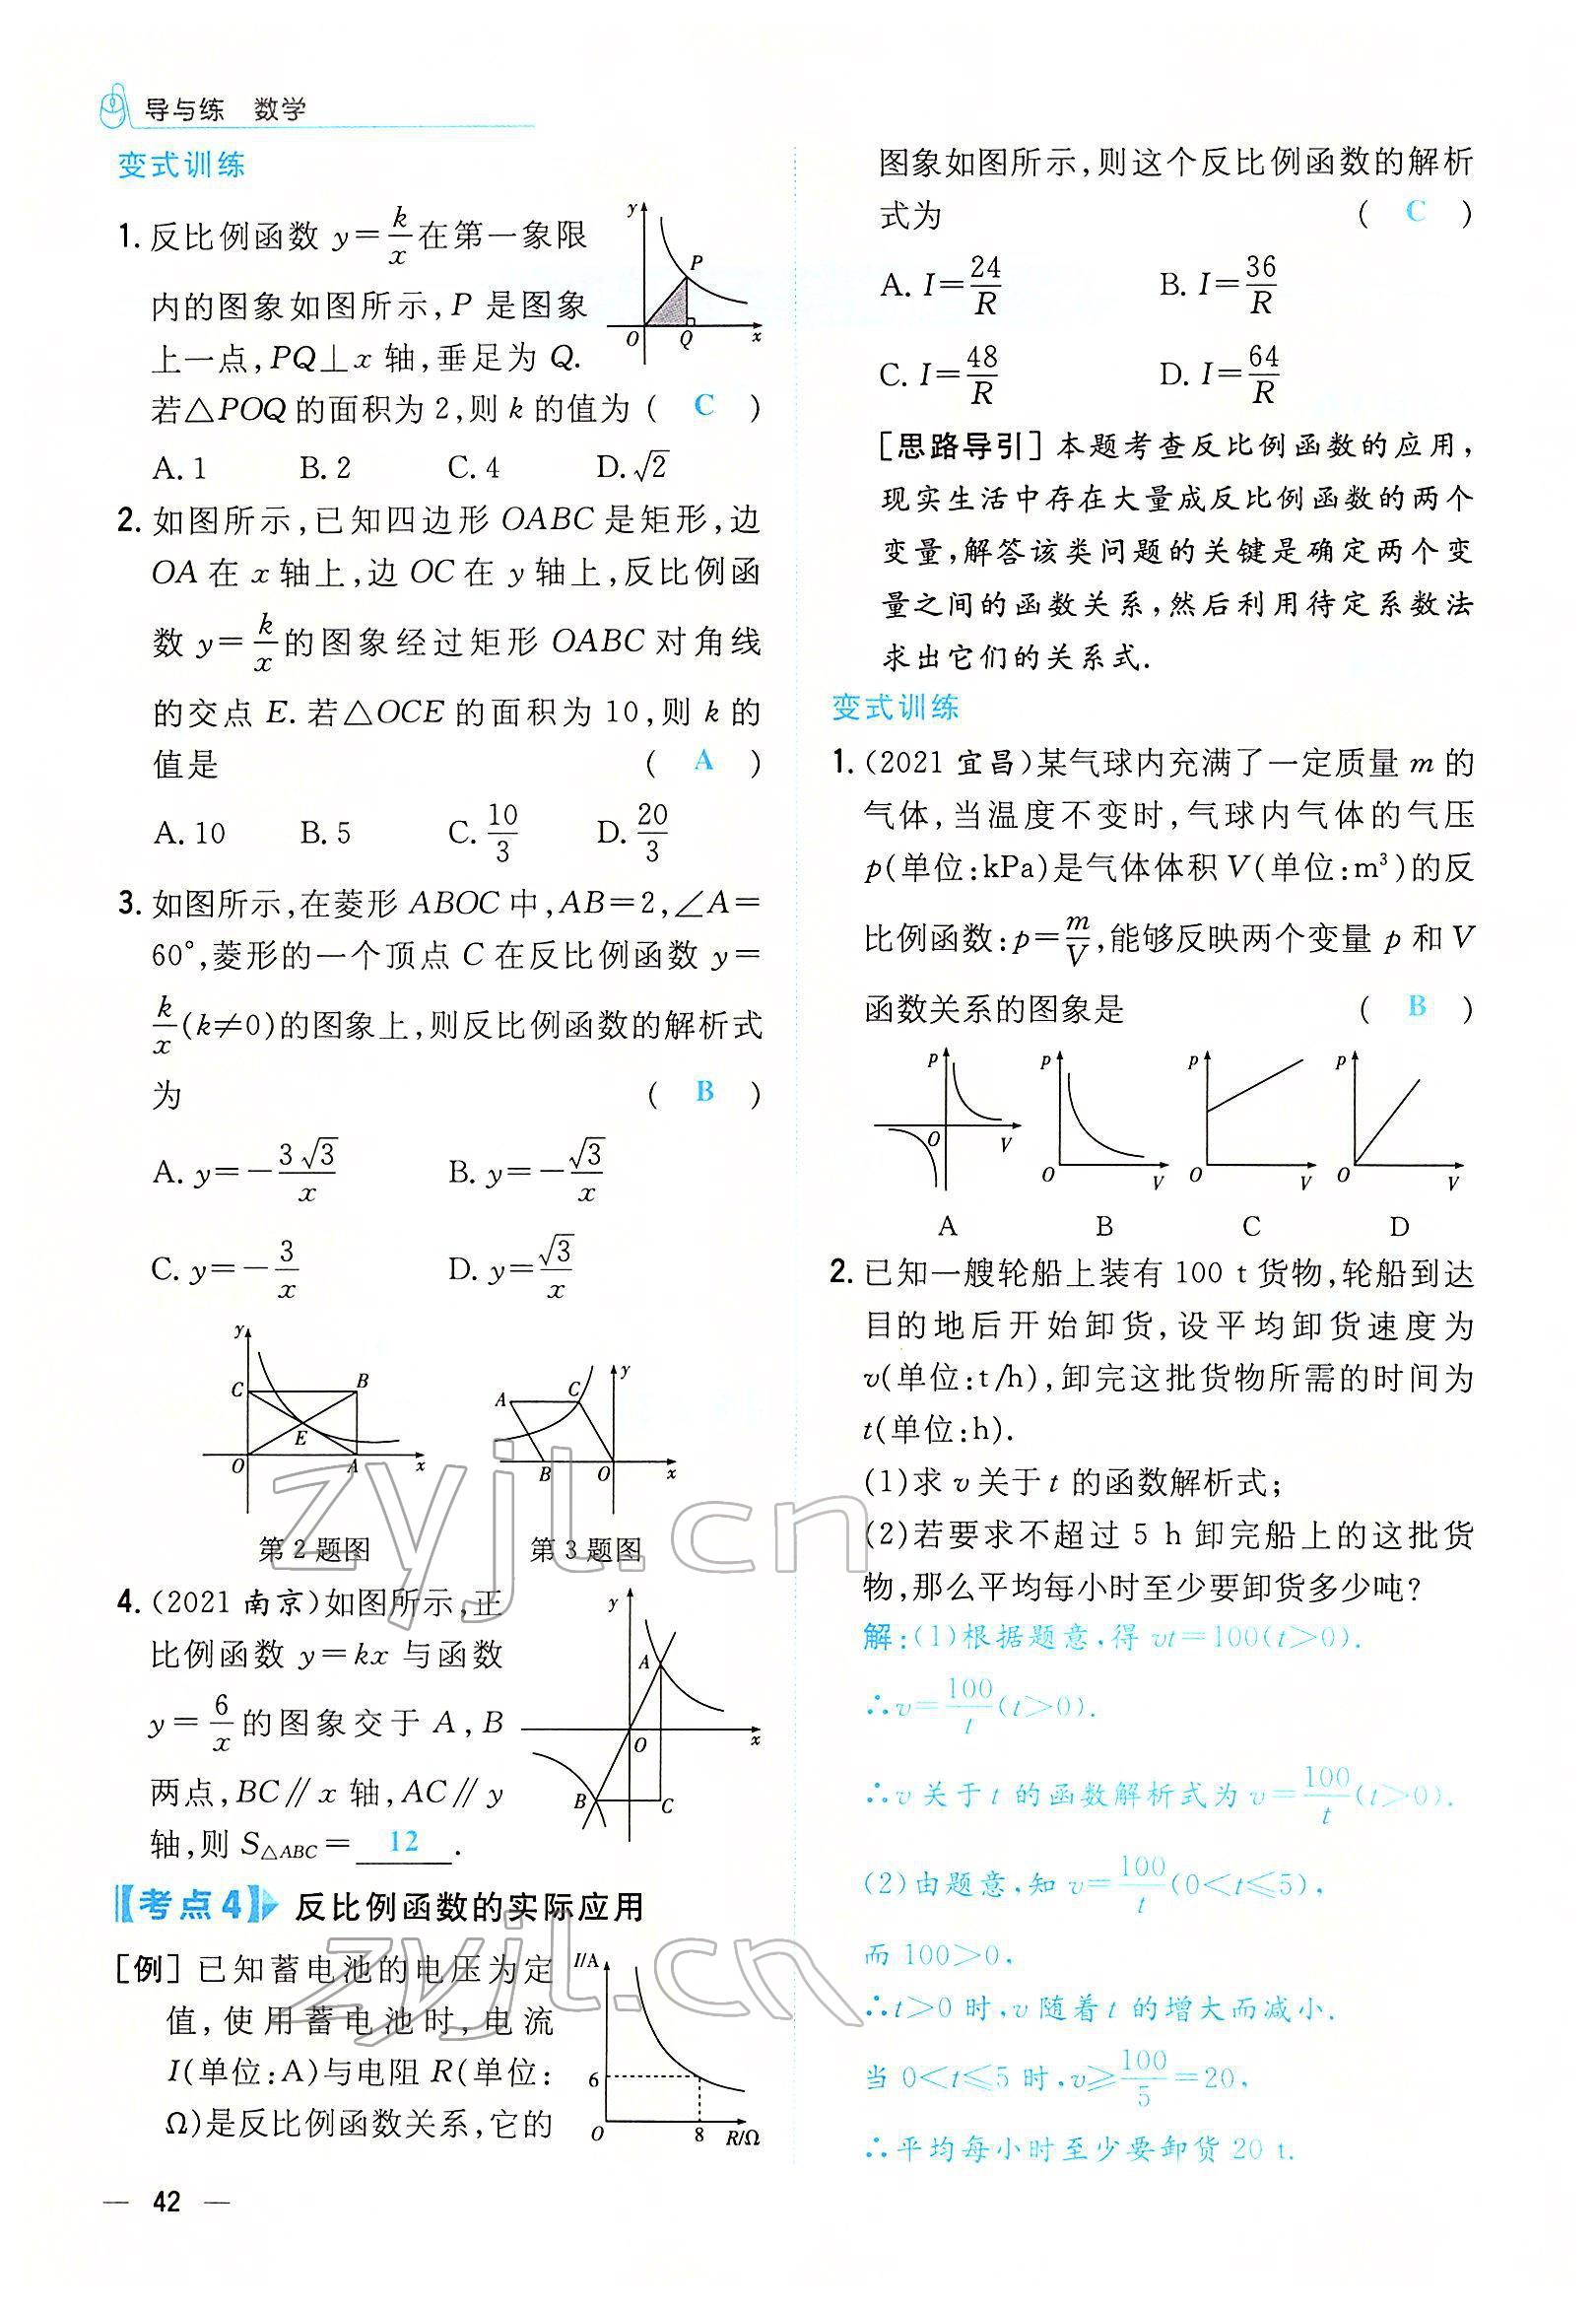 导与练 数学
变式训练
1. 反比例函数 y=k/x 在第一象限
内的图象如图所示,P 是图象
上一点,PQ⊥x 轴,垂足为 Q.
若△POQ 的面积为 2,则 k 的值为 ( C )
A. 1 B. 2 C. 4 D. √2
y
P
O Q x
2. 如图所示,已知四边形 OABC 是矩形,边
OA 在 x 轴上,边 OC 在 y 轴上,反比例函
数 y=k/x 的图象经过矩形 OABC 对角线
的交点 E. 若△OCE 的面积为 10,则 k 的
值是 ( A )
A. 10 B. 5 C. 10/3 D. 20/3
3. 如图所示,在菱形 ABOC 中,AB=2,∠A=
60°,菱形的一个顶点 C 在反比例函数 y=
k/x (k≠0)的图象上,则反比例函数的解析式
为 ( B )
A. y=-3√3/x B. y=-√3/x
C. y=-3/x D. y=√3/x
y
C B
E
O A x
y
A C
B O x
第 2 题图 第 3 题图
4. (2021 南京)如图所示,正
比例函数 y=kx 与函数
y=6/x 的图象交于 A,B
两点,BC∥x 轴,AC∥y
轴,则 S△ABC= 12 .
y
A
O x
B C
【考点4】 反比例函数的实际应用
[例] 已知蓄电池的电压为定
值,使用蓄电池时,电流
I(单位:A)与电阻 R(单位:
Ω)是反比例函数关系,它的
I/A
6
O 8 R/Ω
— 42 —
图象如图所示,则这个反比例函数的解析
式为 ( C )
A. I=24/R B. I=36/R
C. I=48/R D. I=64/R
[思路导引] 本题考查反比例函数的应用,
现实生活中存在大量成反比例函数的两个
变量,解答该类问题的关键是确定两个变
量之间的函数关系,然后利用待定系数法
求出它们的关系式.
变式训练
1. (2021 宜昌)某气球内充满了一定质量 m 的
气体,当温度不变时,气球内气体的气压
p(单位:kPa)是气体体积 V(单位:m³)的反
比例函数:p=m/V,能够反映两个变量 p 和 V
函数关系的图象是 ( B )
p p p p
O V O V O V O V
A B C D
2. 已知一艘轮船上装有 100 t 货物,轮船到达
目的地后开始卸货,设平均卸货速度为
v(单位:t/h),卸完这批货物所需的时间为
t(单位:h).
(1)求 v 关于 t 的函数解析式;
(2)若要求不超过 5 h 卸完船上的这批货
物,那么平均每小时至少要卸货多少吨?
解:(1)根据题意,得 vt=100(t>0).
∴v=100/t(t>0).
∴v 关于 t 的函数解析式为 v=100/t(t>0).
(2)由题意,知 v=100/t(0<t≤5),
而 100>0,
∴t>0 时,v 随着 t 的增大而减小.
当 0<t≤5 时,v≥100/5=20,
∴平均每小时至少要卸货 20 t.
zyjl.cn
zyjl.cn